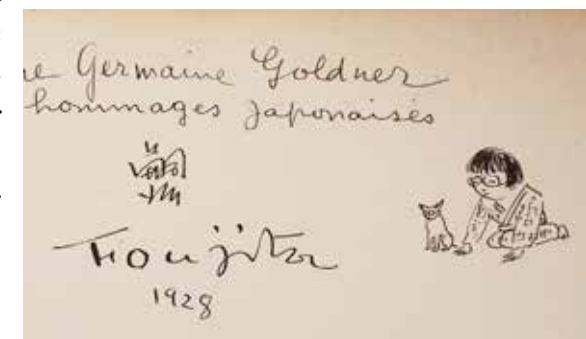 Germaine Goldner
hommages Japonaises
Foujita
1928